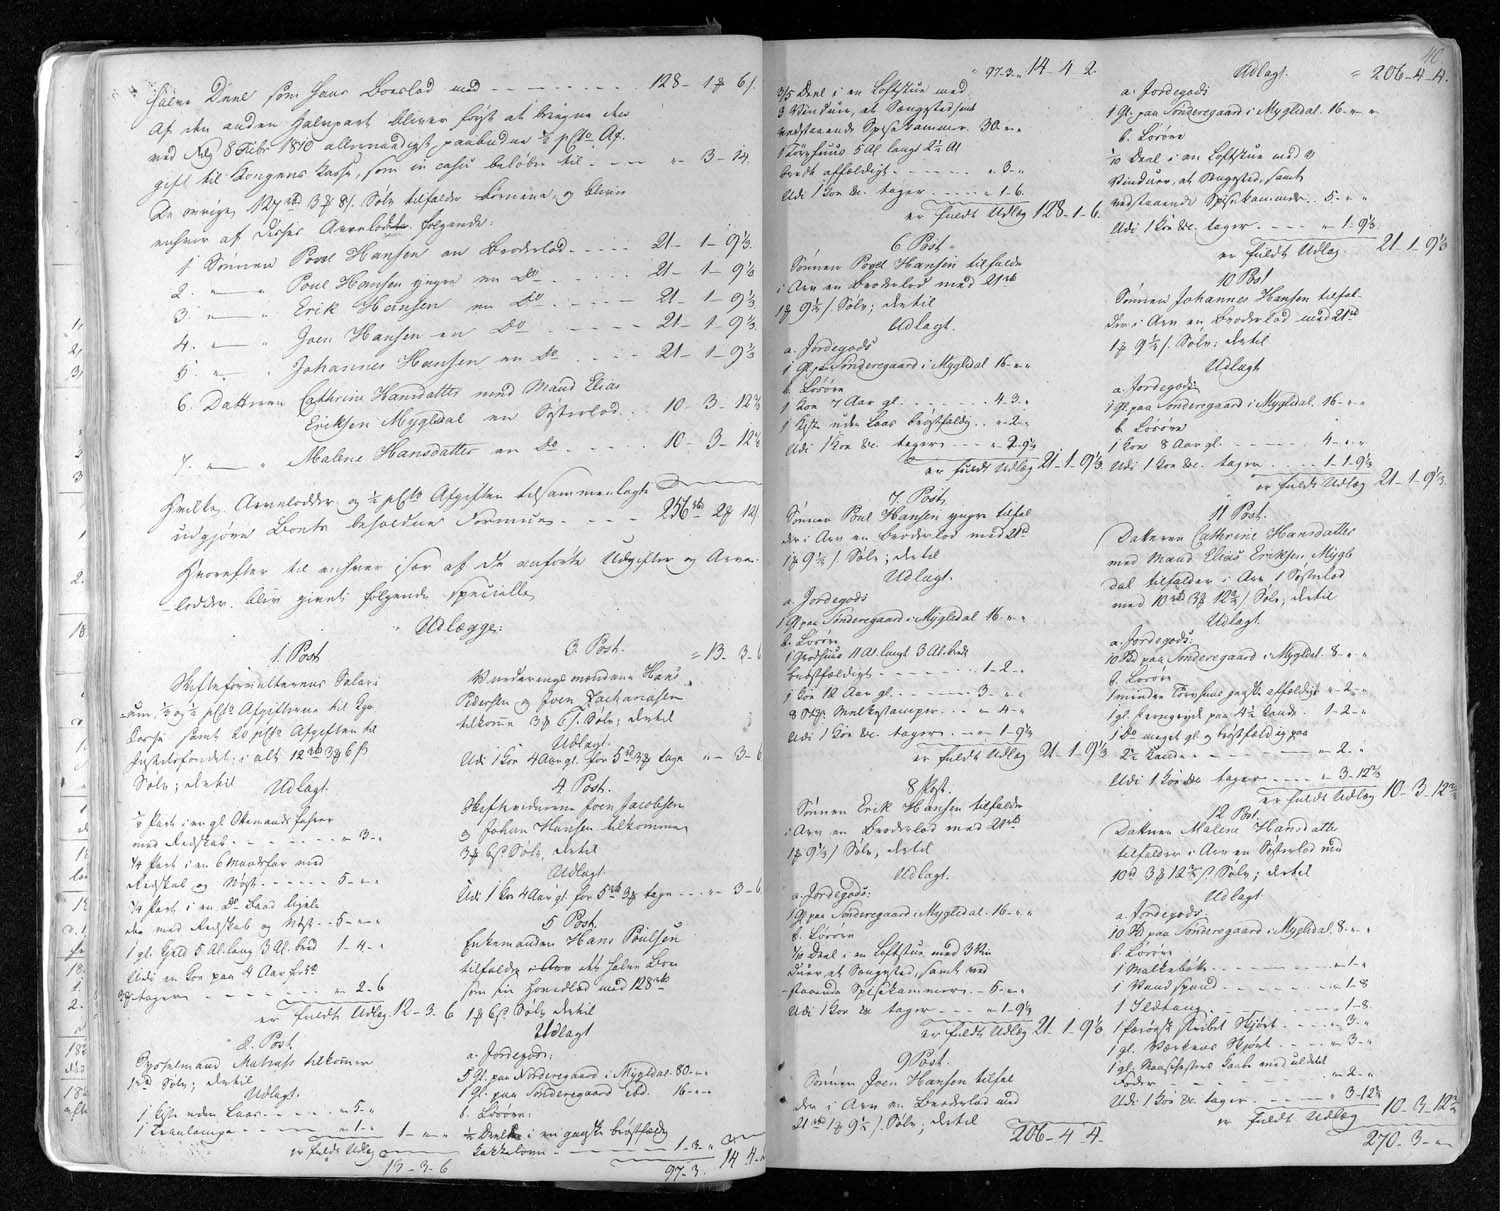 halve Deel som hans Boeslod med - - - 128 - 1 ℳ 6 /.
Af den anden Halvpart bliver først at bringe den
ved 8 Febr 1810 allernaadigst paabudne ½ pCto Af-
gift til Kongens Kasse, som in casu beløber til - - - " - 3 - 14.
De øvrige 127 rd 3 ℳ 8 /. Sølv tilfalde Børnene, og bliver
enhver af disses Arvelod følgende:
1 Sønnen Povel Hansen en Broderlod - - - 21 - 1 - 9⅓
2. — " Poul Hansen yngre en Do - - - 21 - 1 - 9⅓
3. — " Erik Hansen en Do - - - 21 - 1 - 9⅓
4. — " Joen Hansen en Do - - - 21 - 1 - 9⅓
5. — " Johannes Hansen en do - - - 21 - 1 - 9⅓
6. Datteren Cathrine Hansdatter med Mand Elias
Eriksen Mygledal en Søsterlod - - 10 - 3 - 12⅔
7. — " Malene Hansdatter en do - - 10 - 3 - 12⅔
Hvilke Arvelodder og ½ pCto Afgiften tilsammenlagte
udgjøre Boets beholdne Formue - - - 256 rd 2 ℳ 12 /.
Hvorefter til enhver især af de anførte Udgifter og Arve-
lodder blev gjort følgende specielle
Udlægge:
1. Post
Skifteforvalterens Salari-
um, ½ og ½ pCto Afgifterne til
Kasse samt 20 pCto Afgiften til
Justitsfondet i alt 12 rd 3 ℳ 6 /
Sølv; dertil
Udlagt
⅛ Part i en gl. Ottemandsfahrer
med Redskab - - - " 3 - "
¼ Part i en 6 Mandsfar med
Redskab og Nøst - - - 5 - " "
¼ Part i en do
med Redskab og Nøst - 5 - " "
1 gl. Hjeld 5 Al. lang 3 Al. bred 1 - 4 - "
Udi en Koe paa 4 Aar for 5 rd
3 ℳ tages - - - " 2 - 6
er fuldt Udlag 12 - 3 - 6
2. Post
Sysselmand Matras tilkommer
1 rd Sølv; dertil
Udlagt.
1 Kiste uden Laas - - - " 5 - "
1 Tranlampe - - - " 1 - " 1 - " - "
er fuldt Udlag
13 - 3 - 6
3. Post. = 13 - 3 - 6
Vurderingsmændene Hans
Pedersen og Joen Zachariasen
tilkomme 3 ℳ 6 /. Sølv; dertil
Udlagt
Udi 1 Koe 4 Aar gl. for 5 rd 3 ℳ tages " - 3 - 6
4 Post.
Skiftevidnerne Joen Jacobsen
og Johan Hansen tilkomme
3 ℳ 6 / Sølv, dertil
Udlagt
Udi 1 Koe 4 Aar gl. for 5 rd 3 ℳ tages - - " - 3 - 6
5 Post.
Enkemanden Hans Poulsen
tilfalder i Arv det halve Boe
som sin Hovedlod med 128 rd
1 ℳ 6 / Sølv dertil
Udlagt
a. Jordegods:
5 Gl. paa Norderegaard i Mygledal 80 - " "
1 Gl. paa Sønderegaard ibd. 16 - " "
b. Løsøre:
½ Deel i en ganske brøstfældig
Kakkelovn - - - 1 - 3 - "
97 - 3. 14 - 4 - 2
" 97 - 3 " 14 - 4 - 2
3/5 Deel i en Loftstue med
3 Vinduer, et Sengested samt
vedstaaende Spisekammer. 30 " "
1 Tørvhuus 5 Al langt 2½ Al
bredt affældigt - - - " 3 - "
Udi 1 Koe &c. tages - - - " 1 - 6.
er fuldt Udlag 128 - 1 - 6.
6 Post
Sønnen Povel Hansen tilfalder
i Arv en Broderlod med 21 rd
1 ℳ 9⅓ /. Sølv; dertil
Udlagt.
a. Jordegods
1 Gl. paa Sønderegaard i Mygledal 16 - " "
b. Løsøre
1 Koe 7 Aar gl. - - - 4 - 3 - "
1 Kiste uden Laas brøstfældig - " 2 - "
Udi 1 Koe &c. tages - - - " 2 - 9⅓
er fuldt Udlag 21 - 1 - 9⅓
7. Post
Sønnen Poul Hansen yngre tilfal-
der i Arv en Broderlod med 21 rd
1 ℳ 9⅓ /. Sølv; dertil
Udlagt.
a. Jordegods
1 Gl. paa Sønderegaard i Mygledal 16 - " "
b. Løsøre
1 11 Al. langt 3 Al. bredt
brøstfældigt - - - 1 - 2 - "
1 Koe 12 Aar gl. - - - 3 - " "
8 Melkestamper - - " 4 - "
Udi 1 Koe &c. tages - - " 1 - 9⅓
er fuldt Udlag 21 - 1 - 9⅓
8 Post.
Sønnen Erik Hansen tilfalder
i Arv en Broderlod med 21 rd
1 ℳ 9⅓ / Sølv, dertil
Udlagt.
a. Jordegods:
1 Gl. paa Sønderegaard i Mygledal. 16 - " "
b. Løsøre
1/10 Deel i en Loftstue med 3 Vin-
duer et Sengested, samt ved-
staaende Spisekammer - 5 - " "
Udi 1 Koe &c tages - - - " 1 - 9⅓
er fuldt Udlag 21 - 1 - 9⅓
9 Post.
Sønnen Joen Hansen tilfal-
der i Arv en Broderlod med
21 rd 1 ℳ 9⅓ /. Sølv; dertil
206 - 4 - 4.
40
Udlagt. = 206 - 4 - 4.
a. Jordegods
1 Gl. paa Sønderegaard i Mygledal. 16 - " "
b. Løsøre
1/10 Deel i en Loftstue med 3
Vinduer, et Sengested, samt
vedstaaende Spisekammer - - 5 - " "
Udi 1 Koe &c. tages - - - " 1 - 9⅓
er fuldt Udlag 21 - 1 - 9⅓
10 Post
Sønnen Johannes Hansen tilfal-
der i Arv en Broderlod med 21 rd
1 ℳ 9⅓ /. Sølv; dertil
Udlagt
a. Jordegods:
1 Gl. paa Sønderegaard i Mygledal. 16 - " "
b. Løsøre
1 Koe 8 Aar gl. - - - 4 - " "
Udi 1 Koe &c. tages - - - 1 - 1 - 9⅓
er fuldt Udlag 21 - 1 - 9⅓
11 Post.
Datteren Cathrine Hansdatter
med Mand Elias Eriksen Mygle-
dal tilfalder i Arv 1 Søsterlod
med 10 rd 3 ℳ 12⅔ /. Sølv; dertil
Udlagt.
a. Jordegods:
10 Sk paa Sønderegaard i Mygledal 8 - " "
b. Løsøre
1 mindre Tørvhuus ganske affældigt " 2 - "
1 gl. paa 4½ Kande - 1 - 2 - "
1 Do meget gl. og brøstfældig paa
2½ Kande - - - " 2 - "
Udi 1 Koe &c tages - - - " 3 - 12⅔
er fuldt Udlag 10 - 3 - 12⅔
12 Post
Datteren Malene Hansdatter
tilfalder i Arv en Søsterlod med
10 rd 3 ℳ 12⅔ /. Sølv; dertil
Udlagt
a. Jordegods
10 Sk paa Sønderegaard i Mygledal. 8 - " "
b. Løsøre
1 Malkebøtte - - - " 1 - "
1 Vandspand - - - " 1 - 8
1 Ildtang - - - " 1 - 8.
1 færøisk Skjørt - - - " 3 - "
1 gl. Værkens Skjørt - - - " 3 - "
1 gl. med uldet
Foder - - - " 2 - "
Udi 1 Koe &c. tages - - - " 3 - 12⅔
er fuldt Udlag 10 - 3 - 12⅔
270 - 3 - "